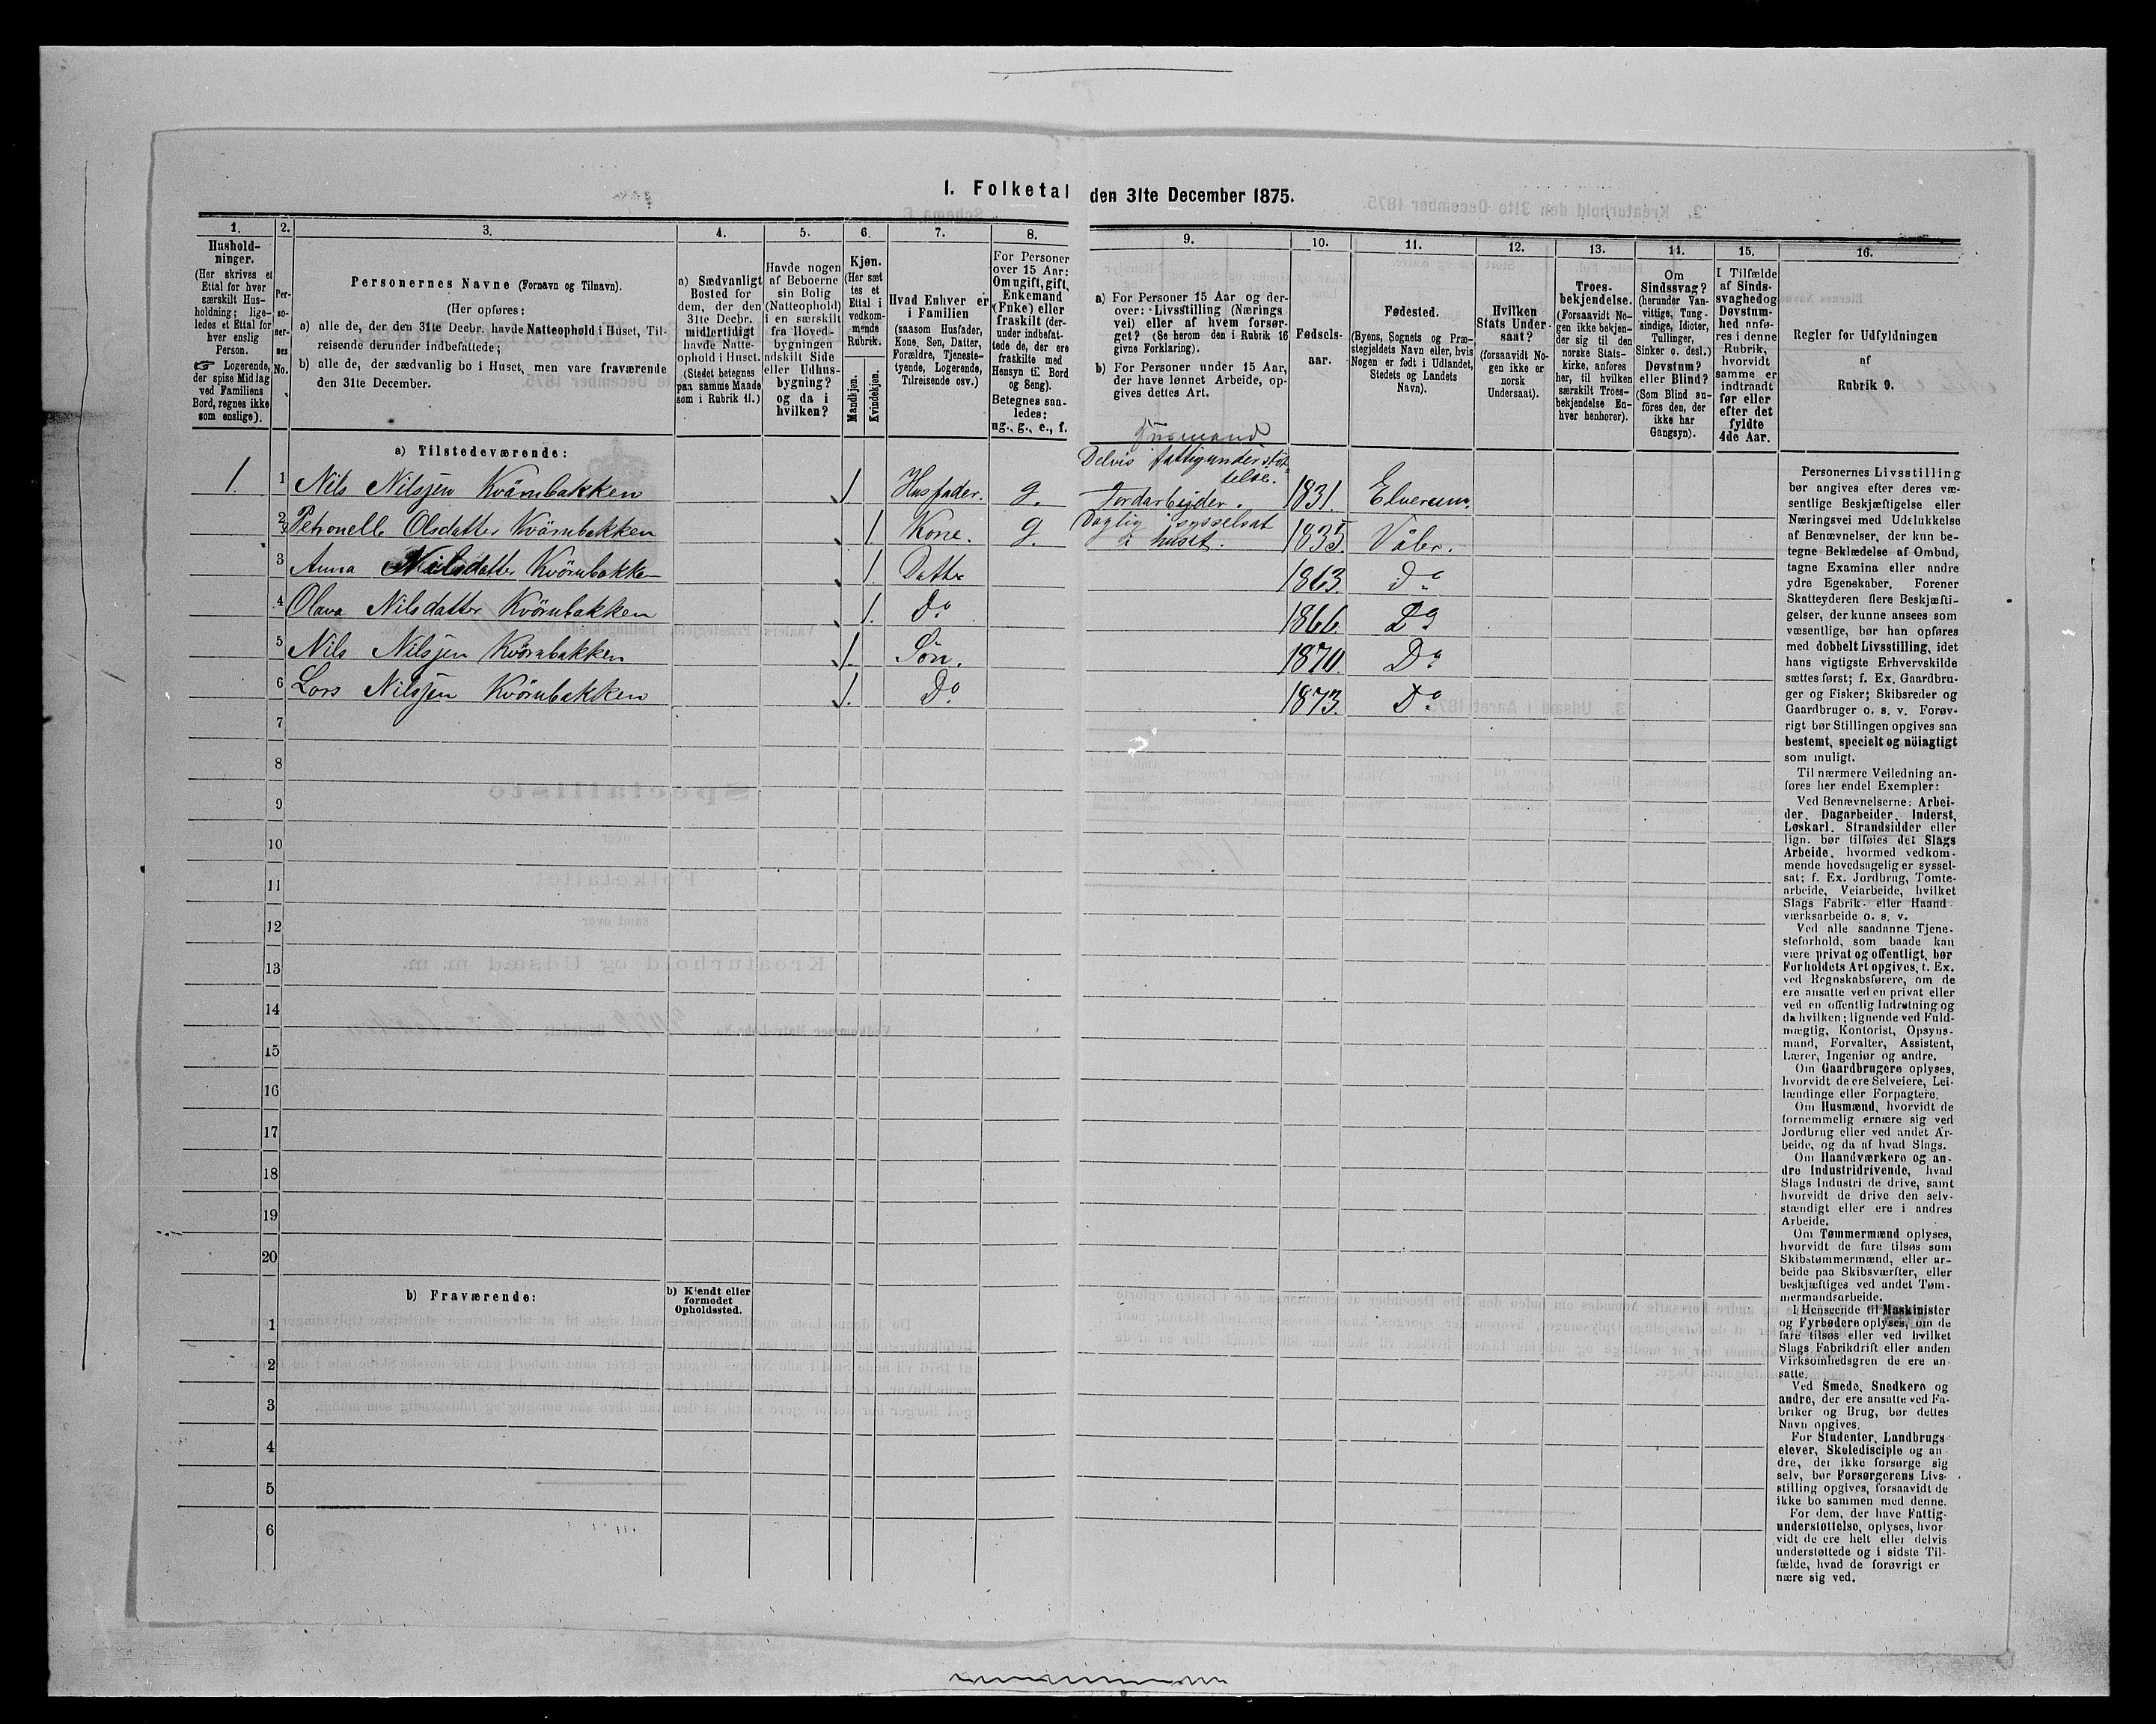 1. Folketal den 31te December 1875.
1.
Hushold-
ninger.
(Her skrives et
Ettal for hver
særskilt Hus-
holdning; lige-
ledes et Ettal for
hver enslig
Person.
☞ Logerende,
der spise Middag
ved Familiens
Bord, regnes ikke
som enslige).
2.
Per-
so-
ner-
nes
No.
3.
Personernes Navne (Fornavn og Tilnavn).
(Her opføres:
a) alle de, der den 31te Decbr. havde Natteophold i Huset, Til-
reisende derunder indbefattede;
b) alle de, der sædvanlig bo i Huset, men vare fraværende
den 31te December.
4.
a) Sædvanligt
Bosted for
dem, der den
31te Decbr.
midlertidigt
havde Natte-
ophold i Huset.
(Stedet betegnes
paa samme Maade
som i Rubrik 11.)
5.
Havde nogen
af Beboerne
sin Bolig
(Natteophold)
i en særskilt
fra Hoved-
bygningen
adskilt Side
eller Udhus-
bygning?
og da i
hvilken?
6.
Kjøn.
(Her sæt
tes et
Ettal i
vedkom-
mende
Rubrik.
Mandkjøn.
Kvindekjøn.
7.
Hvad Enhver er
i Familien
(saasom Husfader,
Kone, Søn, Datter,
Forældre, Tjeneste-
tyende, Logerende,
Tilreisende osv.)
8.
For Personer
over 15 Aar:
Om ugift, gift,
Enkemand
(Enke) eller
fraskilt (der-
under indbefat-
tede de, der ere
fraskilte med
Hensyn til Bord
og Seng).
Betegnes saa-
ledes:
ug., g., e., f.
9.
a) For Personer 15 Aar og der-
over: Livsstilling (Nærings
vei) eller af hvem forsør-
get? (Se herom den i Rubrik 16
givne Forklaring).
b) For Personer under 15 Aar,
der have lønnet Arbeide, op-
gives dettes Art.
10.
Fødsels-
aar.
11.
Fødested.
(Byens, Sognets og Præ-
stegjeldets Navn eller, hvis
Nogen er født i Udlandet,
Stedets og Landets
Navn).
12.
Hvilken
Stats Under-
saat?
(forsaavidt No-
gen ikke er
norsk
Undersaat).
13.
Troes-
bekjendelse.
(Forsaavidt No-
gen ikke bekjen-
der sig til den
norske Stats-
kirke, anføres
her, til hvilken
særskilt Troes-
bekjendelse En-
hver henhører).
14.
Om
Sindssvag?
(herunder Van-
vittige, Tung-
sindige, Idioter,
Tullinger,
Sinker o. desl.)
Døvstum?
eller Blind?
(Som Blind an-
føres den, der
ikke har
Gangsyn).
15.
I Tilfælde
af Sinds-
svaghed og
Døvstum-
hed anfø-
res i denne
Rubrik,
hvorvidt
samme er
indtraadt
før eller
efter det
fyldte
4de Aar.
16.
Regler for Udfyldningen
af
Rubrik 9.
a) Tilstedeværende:
Delvis fattigunderstöt-
telse.
1. 1 Nils Nilsjen Kvärnbakken 1 Husfader. g. Jordarbejder. 1831. Elverum.
2 Petronelle Olsdatter Kvörnbakken 1 Kone. g. Daglig sysselsat i huset. 1835. Våler.
3 Anna Nilsdatter Kvörnbakken 1 Datter 1863. Do
4 Olava Nilsdatter Kvörnbakken 1. Do 1866. Do
5 Nils Nilsjen Kvörnbakken 1. Sön. 1870. Do
6 Lars Nilsjen Kvörnbakken 1. Do. 1873. Do
7
8
9
10
11
12
13
14
15
16
17
18
19
20
b) Fraværende:
b) Kjendt eller
formodet
Opholdssted.
1
2
3
4
5
6
Personernes Livsstilling
bør angives efter deres væ-
sentlige Beskjæftigelse eller
Næringsvei med Udelukkelse
af Benævnelser, der kun be-
tegne Beklædelse af Ombud,
tagne Examina eller andre
ydre Egenskaber. Forener
Skatteyderen flere Beskjæfti-
gelser, der kunne ansees som
væsentlige, bør han opføres
med dobbelt Livsstilling, idet
hans vigtigste Erhvervskilde
sættes først; f. Ex. Gaardbru-
ger og Fisker; Skibsreder og
Gaardbruger o. s. v. Forøv-
rigt bør Stillingen opgives saa
bestemt, specielt og nöiagtigt
som muligt.
Til nærmere Veiledning an-
føres her endel Exempler:
Ved Benævnelserne: Arbei-
der, Dagarbeider, Inderst,
Løskarl, Strandsidder eller
lign. bør tilføies det Slags
Arbeide, hvormed vedkom-
mende hovedsagelig er syssel-
sat; f. Ex. Jordbrug, Tomte-
arbeide, Veiarbeide, hvilket
Slags Fabrik- eller Haand-
værksarbeide o. s. v.
Ved alle saadanne Tjene-
steforhold, som baade kan
være privat og offentligt, bør
Forholdets Art opgives, t. Ex.
ved Regnskabsførere, om de
ere ansatte ved en privat eller
ved en offentlig Indretning og
da hvilken; lignende ved Fuld-
mægtig, Kontorist, Opsyns-
mand, Forvalter, Assistent,
Lærer, Ingeniør og andre.
Om Gaardbrugere oplyses,
hvorvidt de ere Selveiere, Lei-
lændinge eller Forpagtere.
Om Husmænd, hvorvidt de
fornemmelig ernære sig ved
Jordbrug eller ved andet Ar-
beide, og da af hvad Slags.
Om Haandværkere og an-
dre Industridrivende, hvad
Slags Industri de drive, samt
hvorvidt de drive den selv-
stændigt eller ere i andres
Arbeide.
Om Tømmermænd oplyses,
hvorvidt de fare tilsøs som
Skibstømmermænd, eller ar-
beide paa Skibsværfter, eller
beskjæftiges ved andet Tøm-
mermandsarbeide.
I Henseende til Maskinister
og Fyrbødere oplyses, om de
fare tilsøs eller ved hvilket
Slags Fabrikdrift eller anden
Virksomhedsgren de ere an-
satte.
Ved Smede, Snedkere og
andre, der ere ansatte ved Fa-
briker og Brug, bør dettes
Navn opgives.
For Studenter, Landbrugs-
elever, Skoledisciple og an-
dre, der ikke forsørge sig
selv, bør Forsørgerens Livs-
stilling opgives, forsaavidt de
ikke bo sammen med denne.
For dem, der have Fattig-
understøttelse, oplyses, hvor
vidt de ere helt eller delvis
understøttede og i sidste Til-
fælde, hvad de forøvrigt er
nære sig ved.